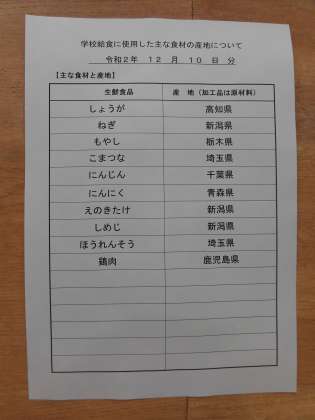 学校給食に使用した主な食材の産地について
令和2年 12 月 10 日 分
【主な食材と産地】
生鮮食品 産 地（加工品は原材料）
しょうが 高知県
ねぎ 新潟県
もやし 栃木県
こまつな 埼玉県
にんじん 千葉県
にんにく 青森県
えのきたけ 新潟県
しめじ 新潟県
ほうれんそう 埼玉県
鶏肉 鹿児島県